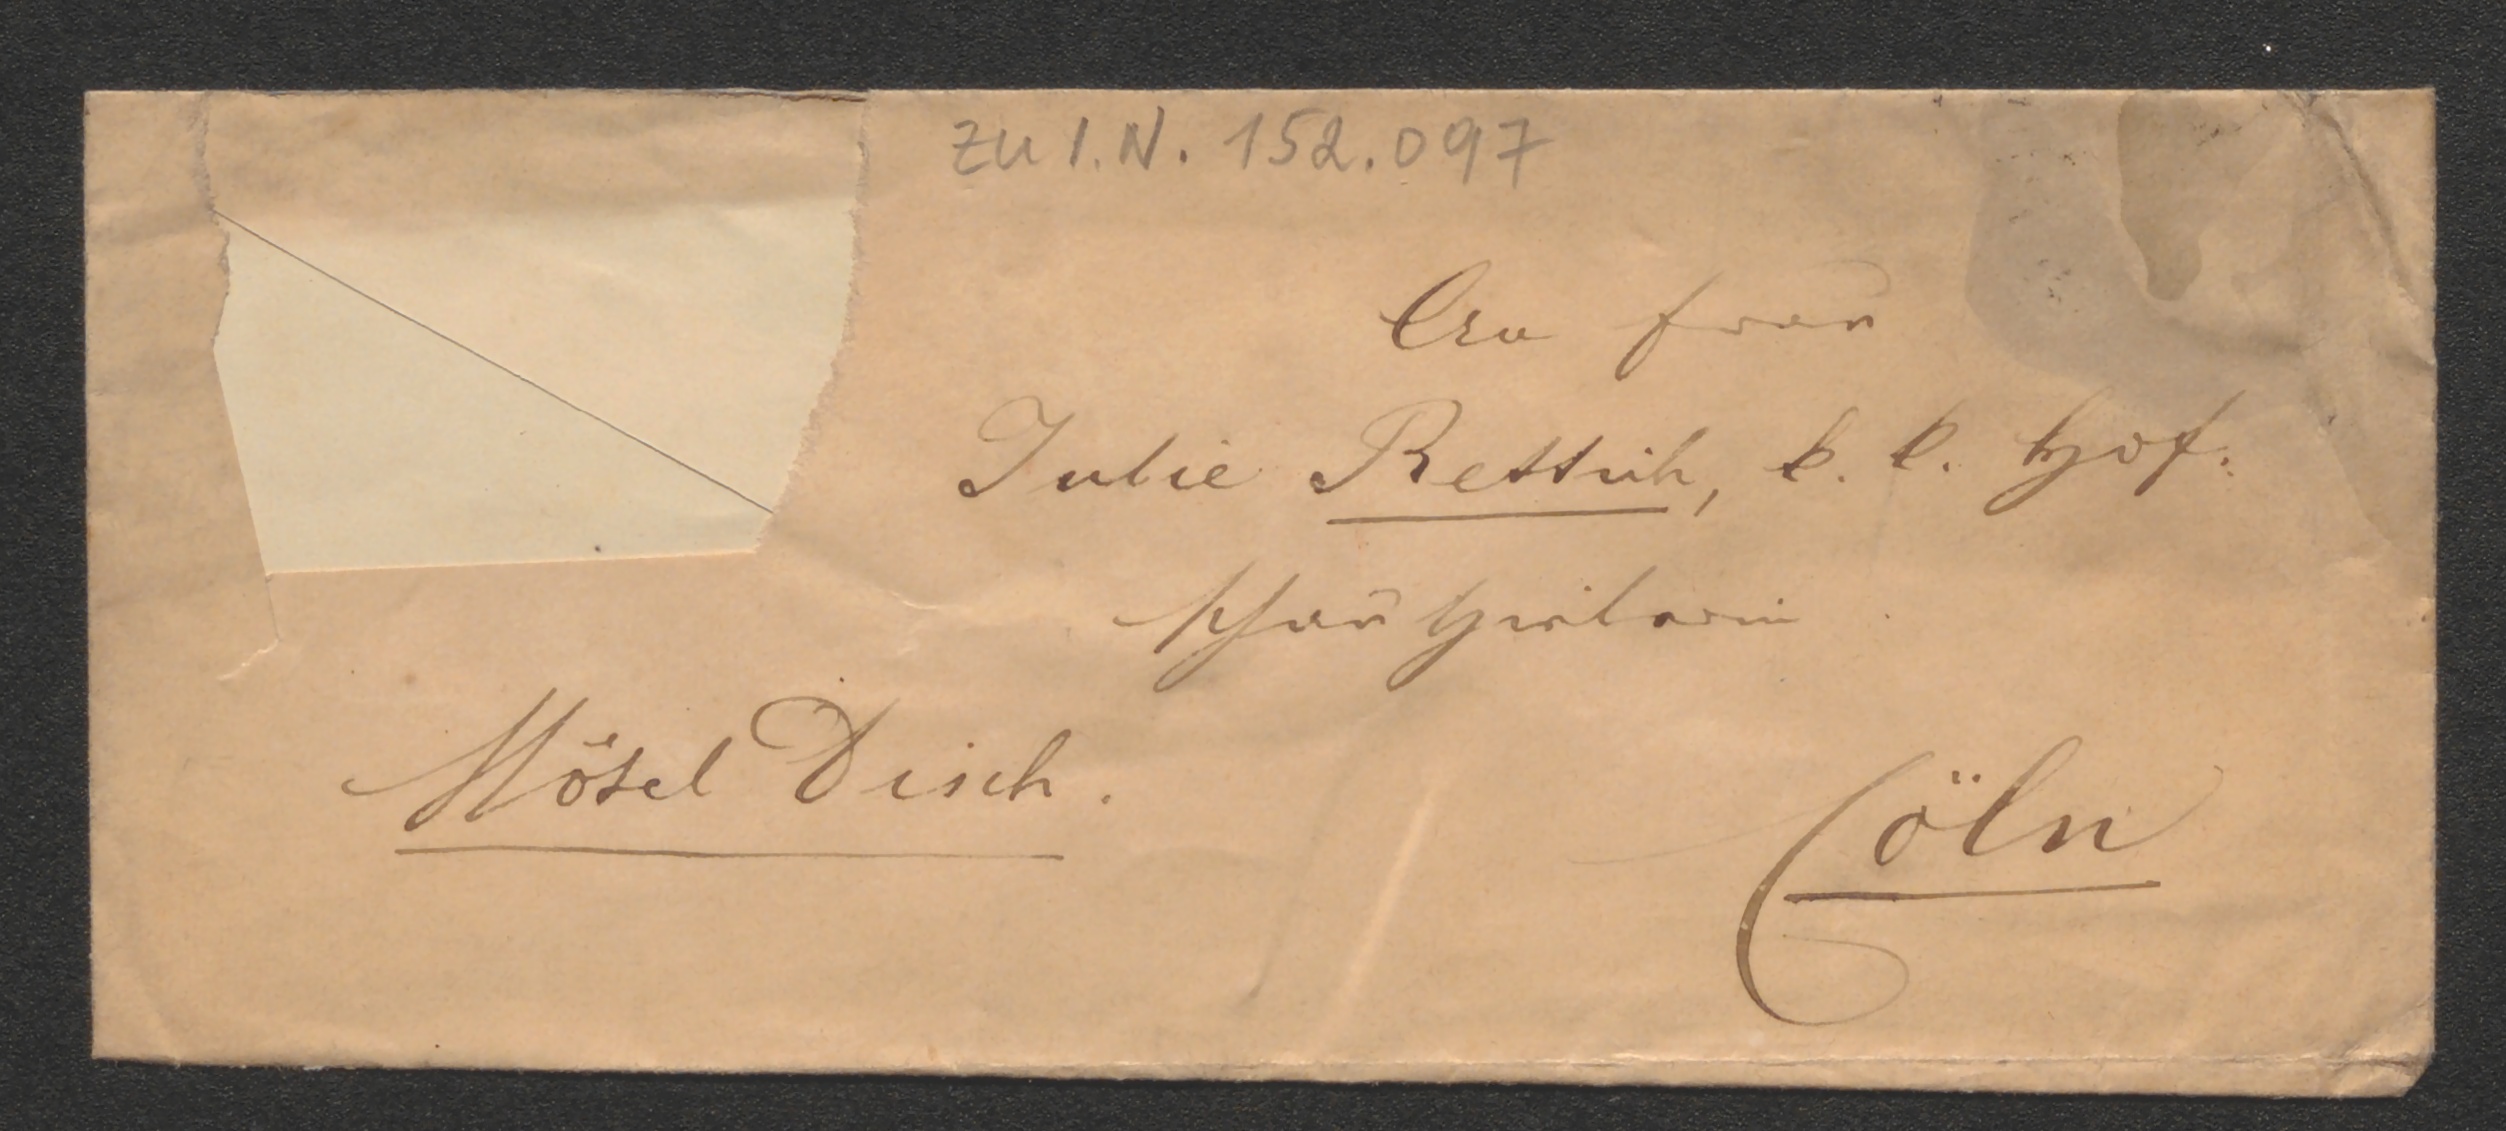 zu I.N. 152.097
An Frau
Julie Rettich, k. k. Hof-
schauspielerin
Hôtel Disch.
Cöln